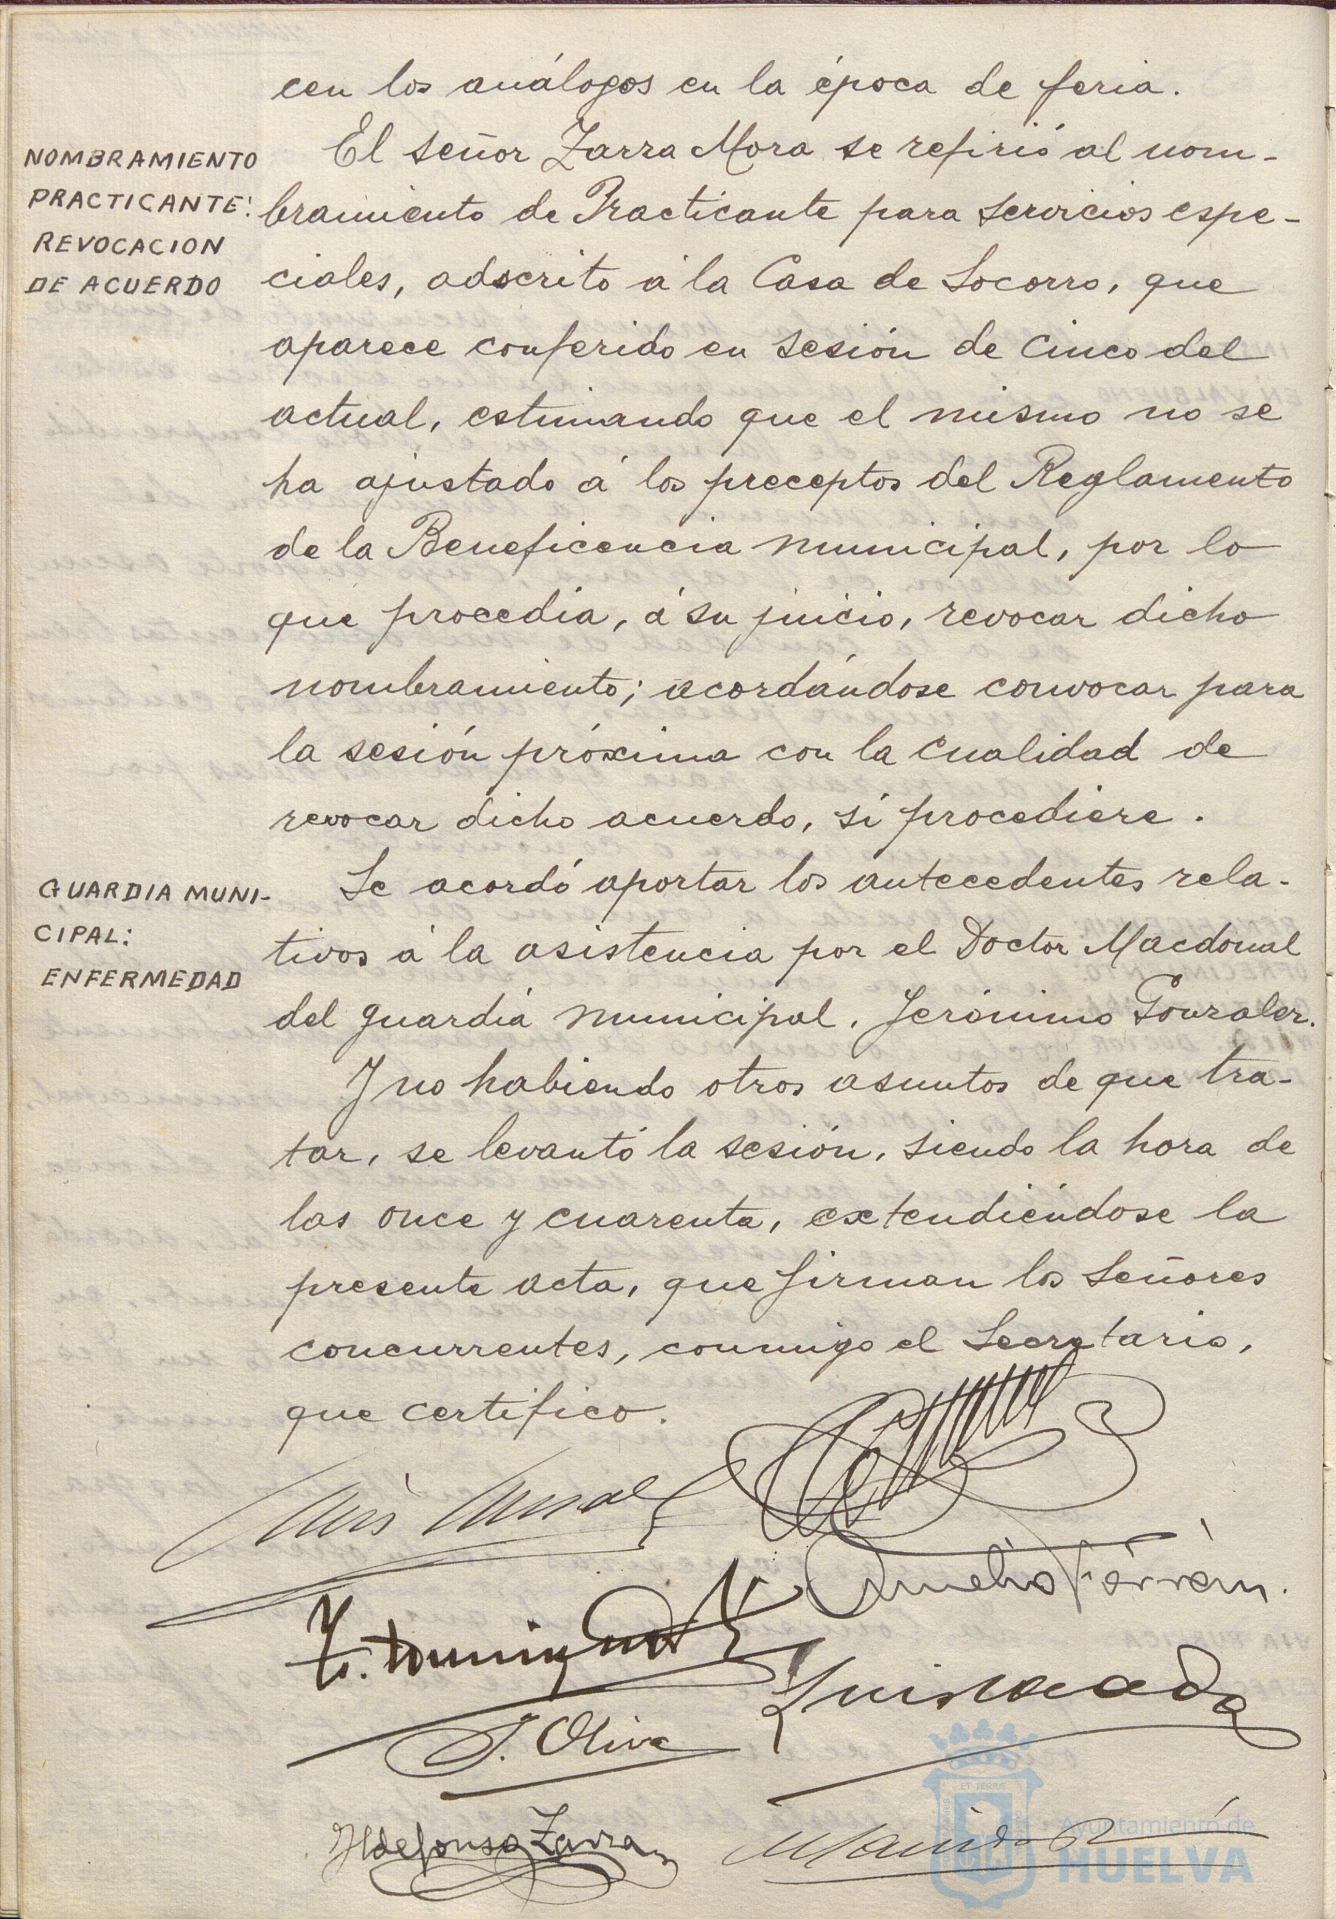 cen los análogos en la época de feria.
NOMBRAMIENTO
PRACTICANTE:
REVOCACION
DE ACUERDO
El señor Zarra Mora se refirió al nom-
bramiento de Practicante para servicios espe-
ciales, adscrito á la Casa de Socorro, que
aparece conferido en sesión de cinco del
actual, estimando que el mismo no se
ha ajustado á los preceptos del Reglamento
de la Beneficencia municipal, por lo
que procedia, á su juicio, revocar dicho
nombramiento; acordándose convocar para
la sesión próxima con la cualidad de
revocar dicho acuerdo, si procediere.
GUARDIA MUNI-
CIPAL:
ENFERMEDAD
Se acordó aportar los antecedentes rela-
tivos á la asistencia por el Doctor Macdonal
del guardia municipal, Jerónimo Gonzalez.
Y no habiendo otros asuntos de que tra-
tar, se levantó la sesión, siendo la hora de
las once y cuarenta, extendiéndose la
presente acta, que firman los Señores
concurrentes, conmigo el Secretario,
que certifico.
Luis
J. Oliva
Ildefonso Zarra
ET TERRIS
Ayuntamiento de
HUELVA